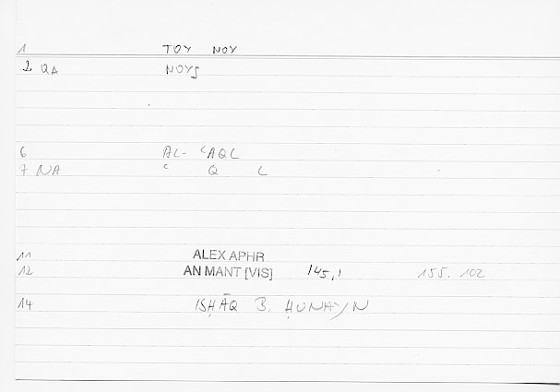 1 TOY NOY
2 QA NOYS
6 AL- ʿAQL
7 NA ʿ Q L
11 ALEX APHR
12 AN MANT [VIS] 145,1 155. 102
14 ISḤĀQ B. ḤUNAYN